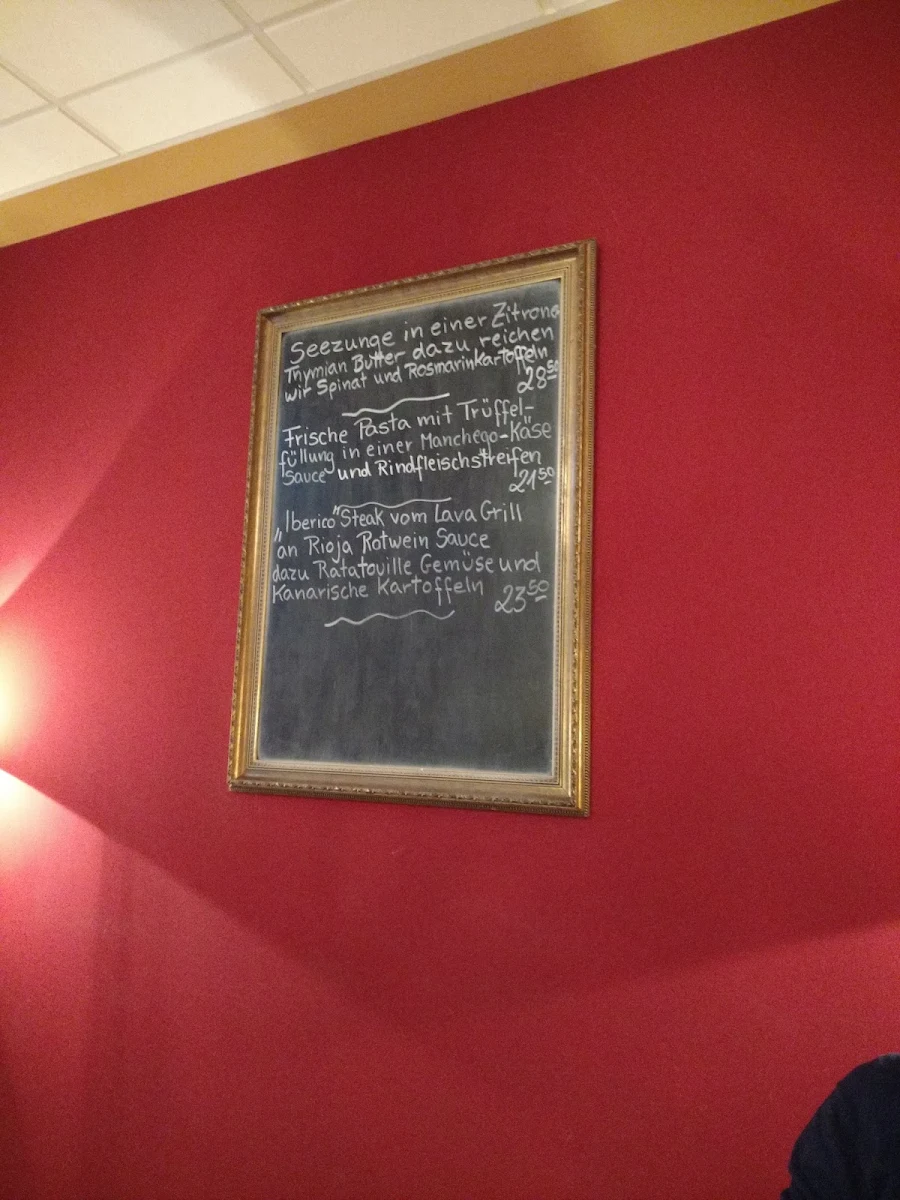 Seezunge in einer Zitrone
Thymian Butter dazu reichen
wir Spinat und Rosmarinkartoffeln
28⁵⁰
Frische Pasta mit Trüffel-
füllung in einer Manchego-Käse
Sauce und Rindfleischstreifen
21⁵⁰
„Iberico" Steak vom Lava Grill
an Rioja Rotwein Sauce
dazu Ratatouille Gemüse und
Kanarische Kartoffeln
23⁵⁰